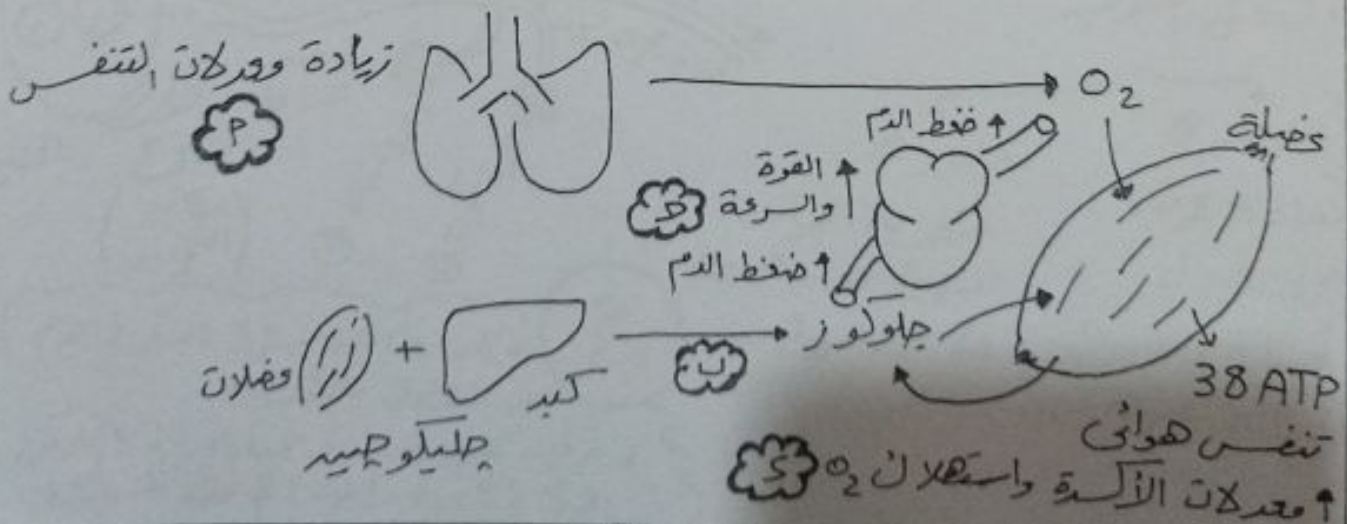 زيادة معدلات التنفس
أ
O₂
عضلة
↑ ضغط الدم
القوة
والسرعة ↑
ج
↑ ضغط الدم
جلوكوز
ب
عضلات + كبد
جليكوجين
38 ATP
تنفس هوائى
↑ معدلات الأكسدة واستهلاك O₂
د